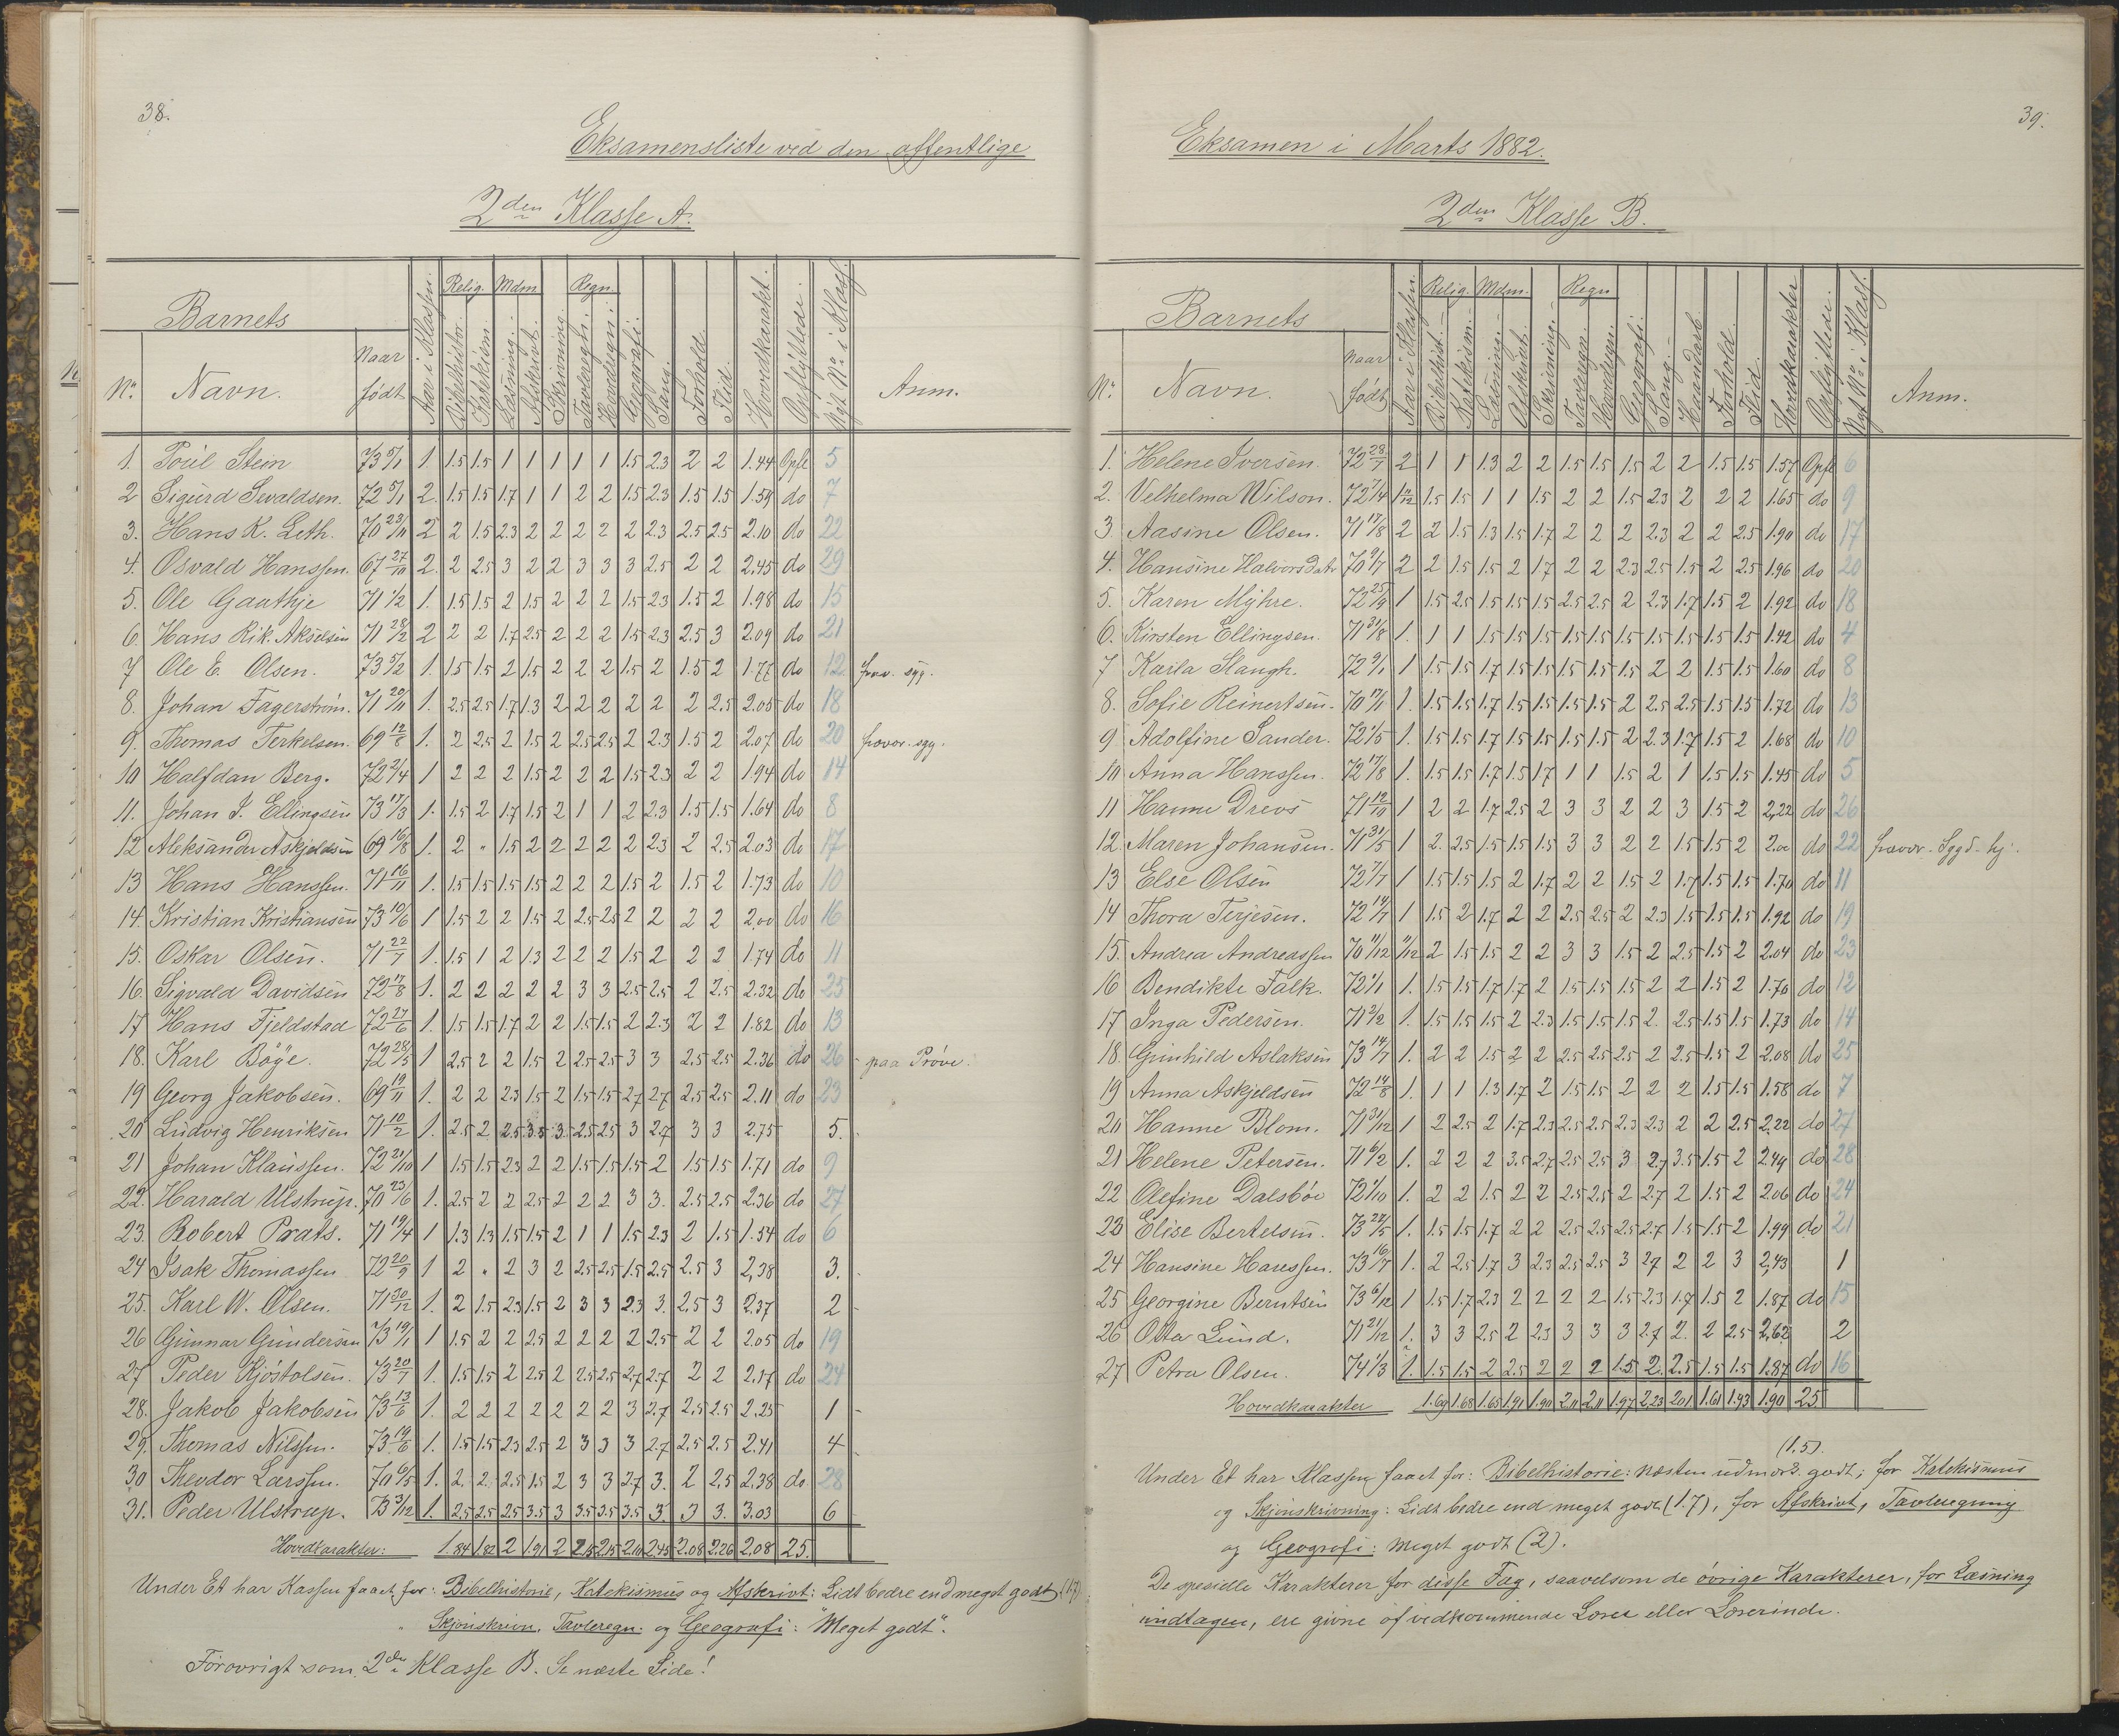 38.
Eksamensliste ved den offentlige
2den Klasse A.
Barnets
Relig. Mdsm. Regn.
No. Navn. Naar født Aar i Klassen. Bibelhistor. Katekism. Læsning. Afskrivt. Skrivning. Tavleregn. Hovedregn. Geografi. Sang. Forhold. Flid. Hovedkarakt. Opflyttede. Nyt No. i Klass. Anm.
1. Poul Stein 73 5/1 1 1.5 1.5 1 1 1 1 1 1.5 2.3 2 2 1.44 Opfl 5
2 Sigurd Sevaldsen. 72 5/1 2. 1.5 1.5 1.7 1 1 2 2 1.5 2.3 1.5 1.5 1.59 do 7
3. Hans K. Leth. 70 23/11 2 2 1.5 2.3 2 2 2 2 2 2.3 2.5 2.5 2.10 do 22
4. Osvald Hanssen. 67 27/10 2. 2 2.5 3 2 2 3 3 3 2.5 2 2 2.45 do 29
5. Ole Gaathje 71 1/2 1. 1.5 1.5 2 1.5 2 2 2 1.5 2.3 1.5 2 1.98 do 15
6. Hans Rik. Akselsen 71 28/2 2 2 2 1.7 2.5 2 2 2 1.5 2.3 2.5 3 2.09 do 21
7 Ole E. Olsen. 73 5/2 1. 1.5 1.5 2 1.5 2 2 2 1.5 2 1.5 2 1.77 do 12 frav. syg.
8. Johan Fagerstrøm. 71 20/11 1. 2.5 2.5 1.7 1.3 2 2 2 2 2 2 2.5 2.05 do 18
9. Thomas Terkelsen. 69 12/8 1. 2 2.5 2 1.5 2 2.5 2.5 2 2.3 1.5 2 2.07 do 20 fravær. syg.
10 Halfdan Berg. 72 2/4 1 2 2 2 1.5 2 2 2 1.5 2.3 2 2 1.94 do 14
11. Johan J. Ellingsen 73 17/3 1. 1.5 2 1.7 1.5 2 1 1 2 2.3 1.5 1.5 1.64 do 8
12 Aleksander Askjeldsen 69 16/8 1. 2 " 1.5 2 2 2 2 2 2.3 2 2.5 2.03 do 17
13 Hans Hanssen. 71 16/11 1. 1.5 1.5 1.5 1.5 2 2 2 1.5 2 1.5 2 1.73 do 10
14. Kristian Kristiansen 73 10/6 1 1.5 2 2 1.5 2 2.5 2.5 2 2 2 2 2.00 do 16
15. Oskar Olsen. 71 22/7 1. 1.5 1 2 1.3 2 2 2 1.5 2 2 2 1.74 do 11
16. Sigvald Davidsen 72 17/8 1. 2 2 2 2 2 3 3 2.5 2.5 2 2.5 2.32 do 25
17 Hans Fjeldstad 72 27/6 1. 1.5 1.5 1.7 2 2 1.5 1.5 2 2.3 2 2 1.82 do 13
18. Karl Böye. 72 28/5 1 2.5 2 2 1.5 2 2.5 2.5 3 3 2.5 2.5 2.36 do 26 - paa Prøve.
19 Georg Jakobsen. 69 19/11 1. 2 2 2.3 1.5 2 1.5 1.5 2.7 2.7 2.5 2.5 2.11 do 23
20 Ludvig Henriksen 71 10/2 1. 2.5 2 2.5 3.5 3. 2.5 2.5 3 2.7 3 3 2.75 5.
21 Johan Klaussen. 72 21/10 1 1.5 1.5 2.3 2 2 1.5 1.5 1.5 2 1.5 1.5 1.71 do 9
22. Harald Ulstrup. 70 23/6 1. 2.5 2 2 2.5 2 2 2 3 3. 2.5 2.5 2.36 do 27
23. Robert Prats. 71 19/4 1 1.3 1.3 1.5 1.5 2 1 1 1.5 2.3 2 1.5 1.54 do 6
24 Isak Thomassen 72 20/9 1 2 " 2 3 2 2.5 2.5 1.5 2.5 2.5 3 2,38 3.
25. Karl W. Olsen. 71 30/12 1. 2 1.5 2.3 1.5 2 3 3 2.3 3. 2.5 3 2.37 2
26 Gunnar Gundersen 73 19/1 1 1.5 2 2 2.5 2 2 2 2 2.5 2 2 2.05 do 19
27 Peder Kjöstolsen. 73 20/7 1. 1.5 1.5 2 2.5 2 2.5 2.5 2.7 2.7 2 2 2.17 do 24
28. Jakob Jakobsen 73 13/6 1. 2 2 2 2 2 2 2 3 2.7 2.5 2.5 2.25 1 -
29. Thomas Nilssen. 73 19/6 1. 1.5 1.5 2.3 2.5 2 3 3 3 2.7 2.5 2.5 2.41 4
30 Theodor Larssen. 70 6/5 1. 2. 2. 2.5 1.5 2 3 3 2.7 3. 2 2.5 2,38 do 28
31. Peder Ulstrup. 73 3/12 1. 2.5 2.5 2.5 3.5 3 3.5 3.5 3.5 3. 3 3. 3.03 6
Hovedkarakter: 1.84 1.82 2 1.91 2 2.15 2.15 2.10 2.45 2.08 2.26 2,08 25.
Under Et har Kassen faaet for: Bibelhistorie, Katekismus og Afskrivt: Lidt bedre end meget godt (1.7)
" Skjönskrivn. Tavleregn. og Geografi: "Meget godt".
Forøvrigt som 2den Klasse B. Se næste Side!
39.
Eksamen i Marts 1882.
2den Klasse B.
Barnets
Relig. Mdsm. Regn
No. Navn. Naar født Aar i Klassen. Bibelhist. Katekism. Læsning. Afskrivt. Skrivning. Tavleregn. Hovedregn. Geografi. Sang. Haandarb. Forhold. Flid. Hovedkarakter Opflyttede. Nyt No. i Klass. Anm.
1. Helene Iversen. 72 28/7 2 1 1 1.3 2 2 1.5 1.5 1.5 2 2 1.5 1.5 1.57 Opfl 6
2. Velhelma Wilson. 72 7/4 1.5 1.5 1 1 1.5 2 2 1.5 2.3 2 2 2 1.65 do 9
3. Aasine Olsen. 71 17/8 2 2 1.5 1.3 1.5 1.7 2 2 2 2.3 2 2 2.5 1.90 do 17
4. Hansine Halvorsdatr 70 9/7 2 2 1.5 1.5 2 1.7 2 2 2.3 2.5 1.5 2 2.5 1.96 do 20
5. Karen Myhre. 72 25/9 1 1.5 2.5 1.5 1.5 1.5 2.5 2.5 2 2.3 1.7 1.5 2 1.92 do 18
6. Kirsten Ellingsen. 71 31/8 1. 1 1 1.5 1.5 1.5 1.5 1.5 1.5 1.5 1.5 1.5 1.5 1.42 do 4
7 Karla Slangh. 72 9/1 1 1.5 1.5 1.7 1.5 1.5 1.5 1.5 1.5 2 2 1.5 1.5 1.60 do 8
8. Sofie Reinertsen. 70 17/11 1. 1.5 1.5 1.7 1.5 1.5 1.5 1.5 2 2.5 2.5 1.5 1.5 1.72 do 13
9 Adolfine Sander. 72 1/5 1. 1.5 1.5 1.7 1.5 1.5 1.5 1.5 2 2.3 1.7 1.5 2 1.68 do 10
10 Anna Hanssen. 72 17/8 1. 1.5 1.5 1.7 1.5 1.7 1 1 1.5 2 1 1.5 1.5 1.45 do 5
11 Hanne Drevs 71 12/10 1 2 2 1.7 2.5 2 3 3 2 2 3 1.5 2 2,22 do 26
12. Maren Johansen. 71 31/5 1 2. 2.5 1.5 1.5 1.5 3 3 2 2 1.5 1.5 2 2.00 do 22 fravær.
13 Else Olsen 72 7/7 1 1.5 1.5 1.5 2 1.7 2 2 1.5 2 1.7 1.5 1.5 1.70 do 11
14 Thora Terjesen. 72 19/7 1 1.5 2 1.7 2 2 2.5 2.5 2 2.3 1.5 1.5 1.5 1.92 do 19
15. Andrea Andreassen 70 11/12 11/12 2 1.5 1.5 2 2 3 3 1.5 2 2.5 1.5 2 2.04 do 23
16 Bendikte Falk. 72 1/1 1. 1.5 1.5 1.7 1.7 2 1.5 1.5 1.5 2 2 1.5 2 1.70 do 12
17 Inga Pedersen. 71 3/2 1. 1.5 1.5 1.5 2 2.3 1.5 1.5 1.5 2. 2.5 1.5 1.5 1.73 do 14
18 Gunhild Aslaksen 73 14/7 1. 2 2 1.5 2 2 2.5 2.5 2.5 2 2.5 1.5 2 2.08 do 25
19 Anna Askjeldsen 72 14/8 1. 1 1 1.3 1.7 2 1.5 1.5 2 2 2 1.5 1.5 1.58 do 7
20 Hanne Blom. 71 31/12 1 2 2.5 2 1.7 2.3 2.5 2.5 2.3 2.3 2 2 2.5 2,22 do 27
21 Helene Petersen. 71 6/2 1. 2 2 2 3.5 2.7 2.5 2.5 3 2.7 3.5 1.5 2 2.49 do 28
22 Olefine Dalsböe 72 1/10 1. 2 2 1.5 2 2 2.5 2.5 2 2.7 2 1.5 2 2.06 do 24
23 Elise Bertelsen. 73 27/5 1. 1.5 1.5 1.7 2 2 2.5 2.5 2.5 2.7 1.5 1.5 2 1.99 do 21
24 Hansine Hanssen. 73 16/7 1. 2 2.5 1.7 3 2.3 2.5 2.5 3 2.7 2 2 3 2,43 1
25 Georgine Berntsen 73 6/12 1 1.5 1.7 2.3 2 2 2 2 1.5 2.3 1.7 1.5 2 1.87 do 15
26 Otta Lund. 71 21/12 1. 3 3 2.5 2 2.3 3 3 3 2.7 2. 2 2.5 2,62 2
27 Petra Olsen. 74 1/3 1. 1.5 1.5 2 2.5 2 2 2 1.5 2. 2.5 1.5 1.5 1.87 do 16
Hovedkarakter 1.69 1.68 1.65 1.91 1.90 2.11 2.11 1.97 2.23 2.01 1.61 1.93 1.90 25
(1.5).
Under Et har Klassen faaet for: Bibelhistorie: næsten udmærk. godt; for Katekismus
og Skjönskrivning: Lidt bedre end meget godt (1.7), for Afskrivt, Tavleregning
og Geografi: meget godt (2).
De spesielle Karakterer for disse Fag, saavelsom de øvrige Karakterer, for Læsning
undtagen, ere givne af vedkommende Lærer eller Lærerinde.